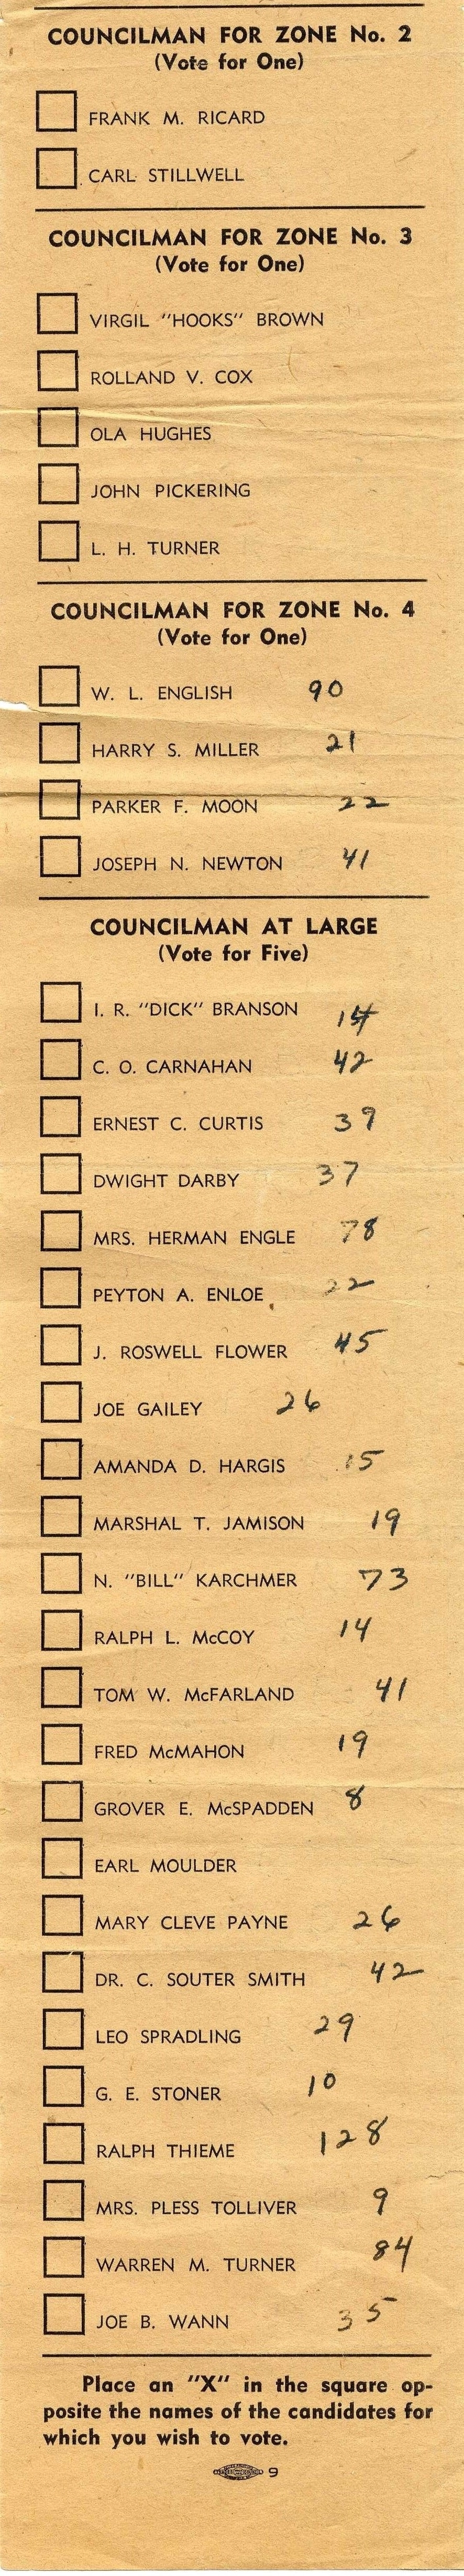 COUNCILMAN FOR ZONE No. 2
(Vote for One)
FRANK M. RICARD
CARL STILLWELL
COUNCILMAN FOR ZONE No. 3
(Vote for One)
VIRGIL "HOOKS" BROWN
ROLLAND V. COX
OLA HUGHES
JOHN PICKERING
L. H. TURNER
COUNCILMAN FOR ZONE No. 4
(Vote for One)
W. L. ENGLISH 90
HARRY S. MILLER 21
PARKER F. MOON 22
JOSEPH N. NEWTON 41
COUNCILMAN AT LARGE
(Vote for Five)
I. R. "DICK" BRANSON
C. O. CARNAHAN 42
ERNEST C. CURTIS 39
DWIGHT DARBY 37
MRS. HERMAN ENGLE 78
PEYTON A. ENLOE 22
J. ROSWELL FLOWER 45
JOE GAILEY 26
AMANDA D. HARGIS 15
MARSHAL T. JAMISON 19
N. "BILL" KARCHMER 73
RALPH L. McCOY 14
TOM W. McFARLAND 41
FRED McMAHON 19
GROVER E. McSPADDEN 8
EARL MOULDER
MARY CLEVE PAYNE 26
DR. C. SOUTER SMITH 42
LEO SPRADLING 29
G. E. STONER 10
RALPH THIEME 128
MRS. PLESS TOLLIVER 9
WARREN M. TURNER 84
JOE B. WANN 35
Place an "X" in the square op-
posite the names of the candidates for
which you wish to vote.
9